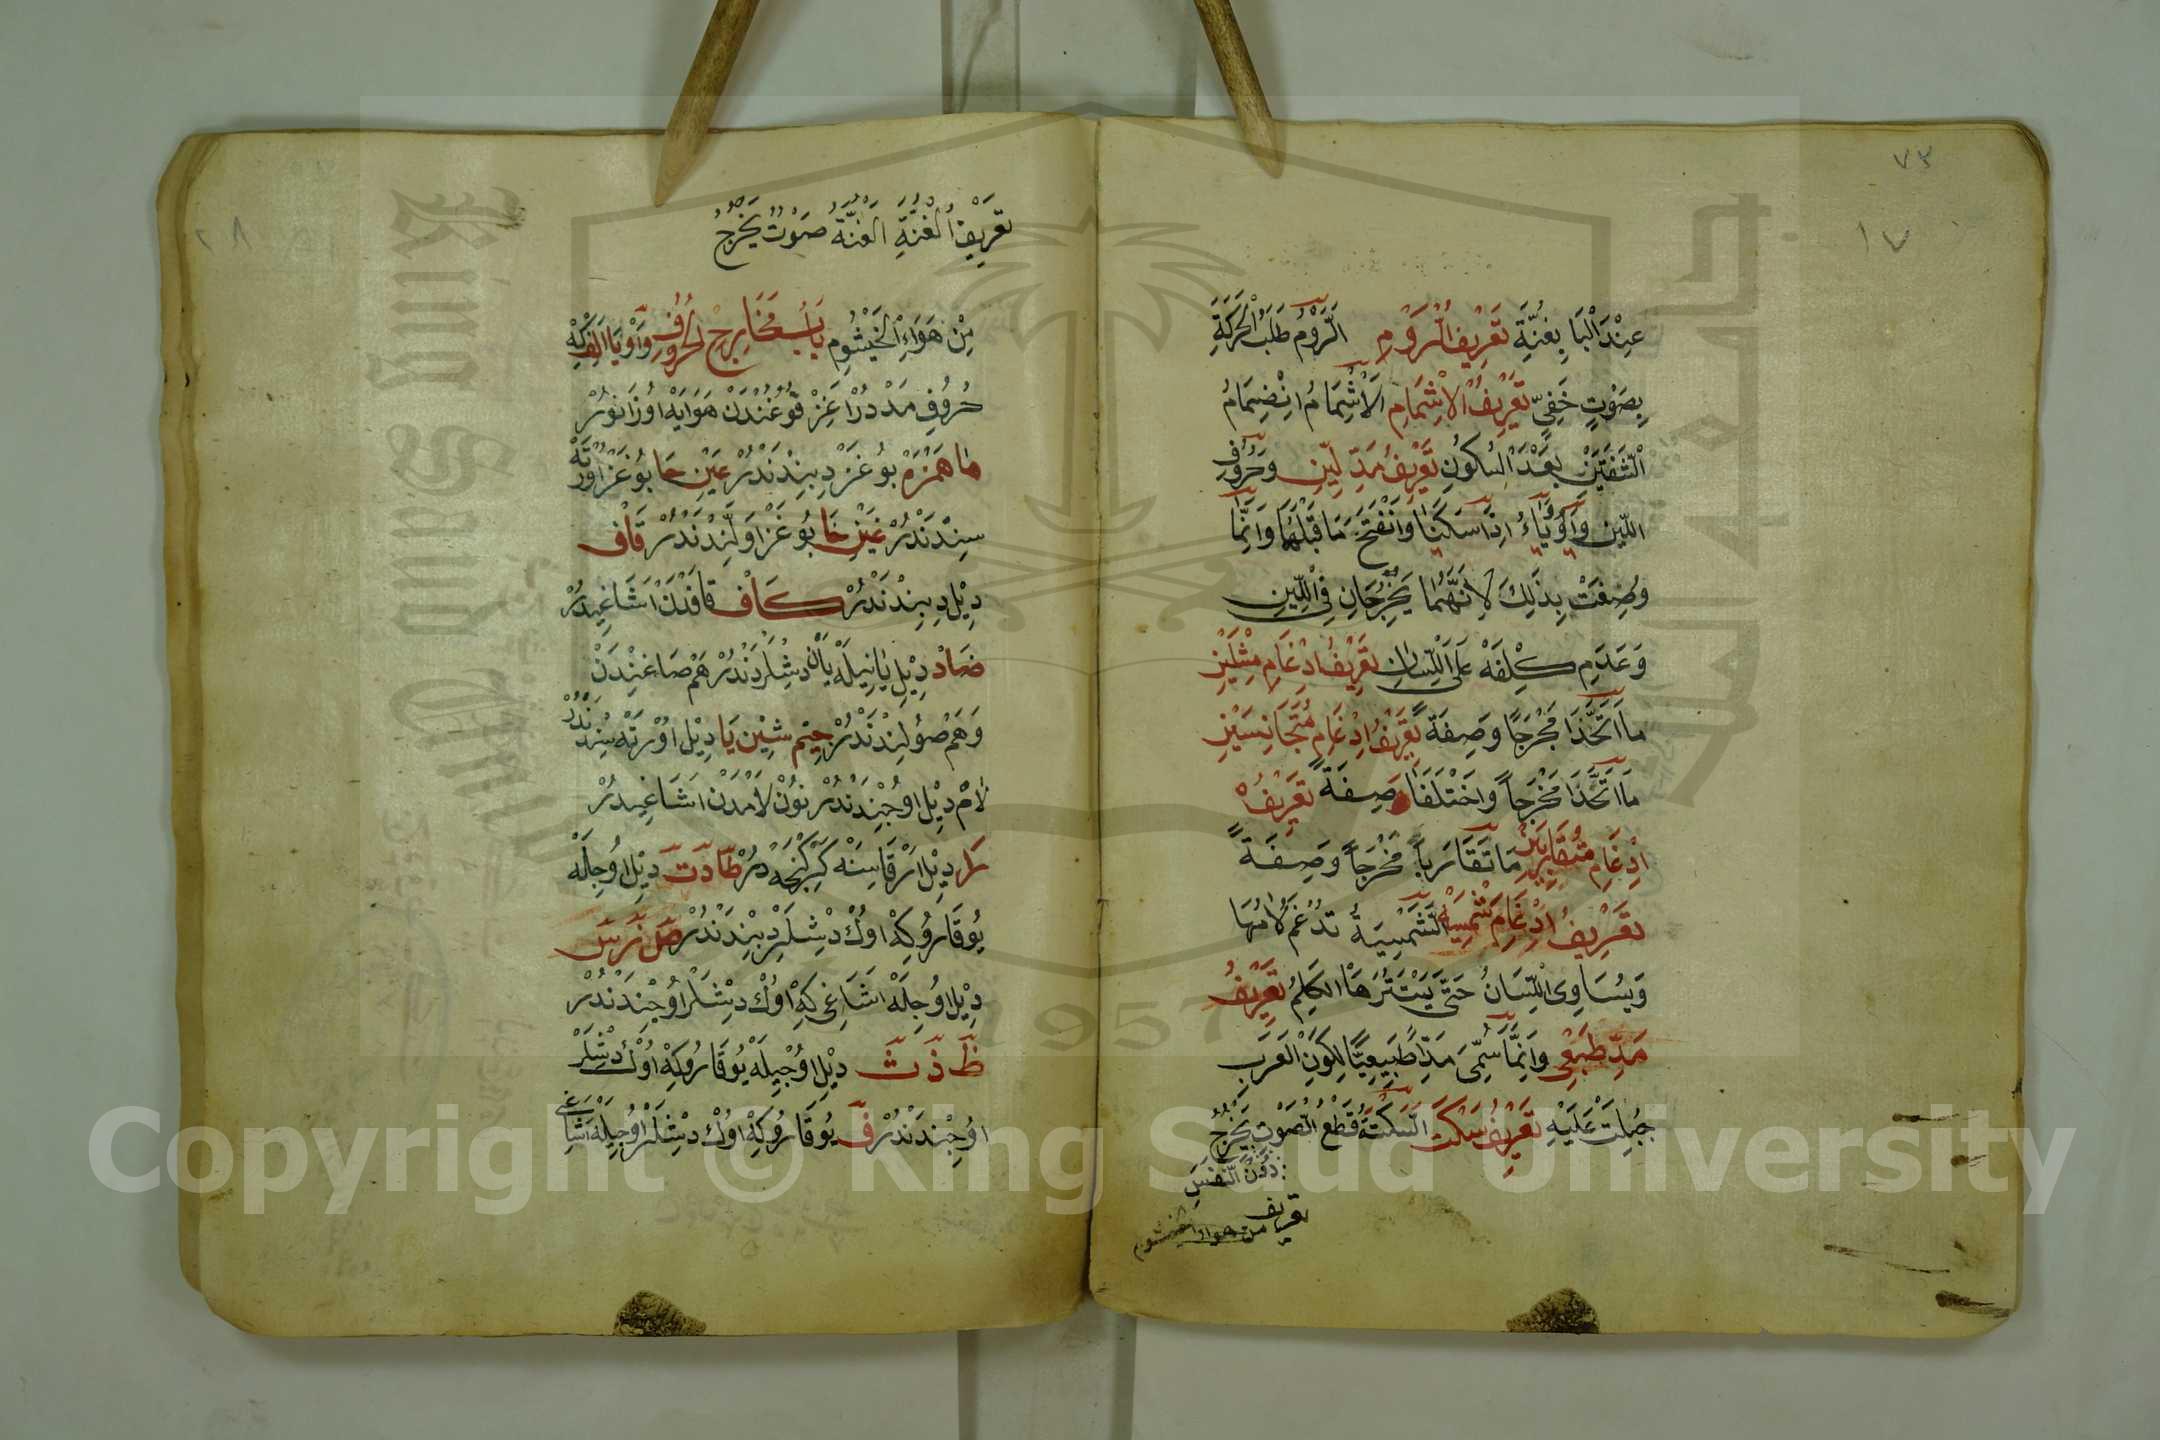 ٧٣
١٧
عِنْدَ الْبَا بِغُنَّةٍ تَعْرِيفُ الرَّوْمِ اَلرَّوْمُ طَلَبُ الْحَرَكَةِ
بِصَوْتٍ خَفِيٍّ تَعْرِيفُ الْاِشْمَامِ اَلْاِشْمَامُ اِنْضِمَامُ
الشَّفَتَيْنِ بَعْدَ السُّكُونِ تَعْرِيفُ مَدِّ لِينٍ وَحُرُوفِ
اللِّينِ وَاوٌ وَيَاءٌ اِذَا سَكَنَا وَانْفَتَحَ مَا قَبْلَهَا وَاِنَّمَا
وُصِفَتْ بِذَلِكَ لِاَنَّهُمَا يَخْرُجَانِ فِي اللِّينِ
وَعَدَمِ كِلْفَةْ عَلَى اللِّسَانِ تَعْرِيفُ ادْغَامِ مِثْلَيْنِ
مَا اتَّحَدَا مَخْرَجًا وَصِفَةً تَعْرِيفُ اِدْغَامِ مُتَجَانِسَيْنِ
مَا اتَّحَدَا مَخْرَجاً وَاخْتَلَفَا صِفَةً تَعْرِيفُ
اِدْغَامِ مُتَقَارِبَيْنِ مَا تَقَارَبَا مَخْرَجاً وَصِفَةً
تَعْرِيفُ اِدْغَامِ شَمْسِيَّةِ الشَّمْسِيَةُ تُدْغَمُ لَامُهَا
وَيُسَاوِى اللِّسَانُ حَتَّى يَسْتُرَهَا الكَلِمُ تَعْرِيفُ
مَدِّ طَبِعِى وَاِنَّمَا سُمِّىَ مَدًّا طَبِيعِيًّا لِكَوْنِ الْعَرَبِ
جُبِلَتْ عَلَيْهِ تَعْرِيفُ سَكْتَ اَلسَّكْتَةُ قَطْعُ الصَّوْتِ يَخْرُجُ
دُونَ النَّفَسِ
تعريف
من هواء الخيشوم
٢٨
تَعْرِيفُ الْغُنَّةِ اَلْغُنَّةُ صَوْتٌ يَخْرُجُ
مِنْ هَوَاءِ الْخَيْشُومِ بَابُ مَخَارِجِ الْحُرُوفِ وَاوْ يَا اَلِفْ كِهْ
حُرُوفِ مَدْ دُرْ اَغِزْ قَوُغُنْدَنْ هَوَايَهْ اوُزَانوُرْ
هَا هَمْزَهْ بوُغَزْ دِبِنْدَنْدُرْ عَيْنِ حَا بُوغَزْ اوُرْتَهْ
سِنْدَنْدُرْ غَيْنِ خَا بُوغَزْ اَوَّلِنْدَنْدُرْ قَافْ
دِيْلْ دِبِنْدَنْدُرْ كَافْ قَافْدَنْ اَشَاغِيدُرْ
ضَادْ دِيْلِ يَانِيلَهْ يَانْ دِشْلَرْدَنْدُرْ هَمْ صَاغِنْدَنْ
وَهَمْ صُولِنْدَنْدُرْ جِيْمِ شِيْنِ يَا دِيْلْ اوُرْتَهْ سِنْدَنْدُرْ
لَامْ دِيْلْ اوُجِنْدَنْدُرْ نُونْ لَامْدَنْ اَشَاغِيدُرْ
رَا دِيْلْ اَرْقَاسِنَهْ دُرْ طَ دَ تَ دِيْلْ اوُجِلَهْ
يُوقَارُوكِهْ اوُكْ دِشْلَرْ دِبِنْدَنْدُرْ صَ زَ سَ
دِيْلْ اوُجِلَهْ اَشَاغِى كِهْ اوُكْ دِشْلَرْ اوُجِنْدَنْدُرْ
ظَ ذَ ثَ دِيْلْ اوُجِيلَهْ يُوقَارُوكِهْ اوُكْ دِشْلَرْ
اوُجِنْدَنْدُرْ فَ يُوقَارُوكِهْ اوُكْ دِشْلَرْ اوُجِيلَهْ اَشَاغِى
King Saud University
1957
Copyright © King Saud University